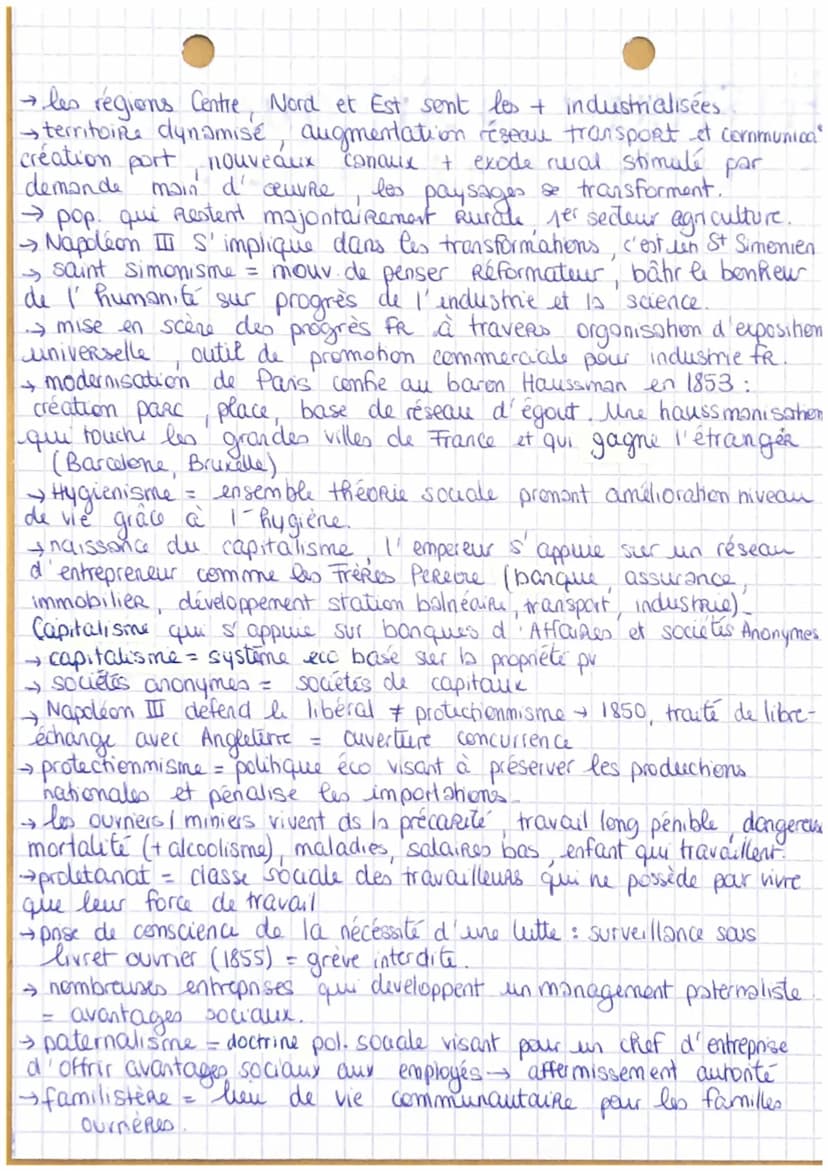 → les régions Centre, Nord et Est sont les + industrialisées
→ territoire dynamisé, augmentation réseau transport et communica°
création port, nouveaux canaux + exode rural stimulé par
demande main d'œuvre, les paysages se transforment.
→ pop. qui restent majoritairement rurale, 1er secteur agriculture.
→ Napoléon III s'implique dans les transformations, c'est un St Simonien
→ saint simonisme = mouv. de penser réformateur, bâtir le bonheur
de l'humanité sur progrès de l'industrie et la science.
→ mise en scène des progrès FR à travers organisation d'exposition
universelle, outil de promotion commerciale pour industrie fR.
→ modernisation de Paris confie au baron Haussman en 1853 :
création parc, place, base de réseau d'égout. Une haussmanisation
qui touche les grandes villes de France et qui gagne l'étranger
(Barcelone, Bruxelle)
→ Hygiénisme = ensemble théorie sociale prenant amélioration niveau
de vie grâce à l'hygiène.
→ naissance du capitalisme, l'empereur s'appuie sur un réseau
d'entrepreneur comme les Frères Pereire (banque, assurance,
immobilier, développement station balnéaire, transport, industrie).
Capitalisme qui s'appuie sur banques d'Affaires et sociétés Anonymes
→ capitalisme = système eco basé sur la propriété pv
→ sociétés anonymes = sociétés de capitaux
→ Napoléon III defend le libéral ≠ protectionnmisme → 1850, traité de libre-
échange avec Angleterre = ouverture concurrence
→ protectionnmisme = politique éco visant à préserver les productions
nationales et pénalise les importations.
→ les ouvriers / miniers vivent ds la précarité, travail long pénible, dangereux
mortalité (+ alcoolisme), maladies, salaires bas, enfant qui travaillent.
→ prolétariat = classe sociale des travailleurs qui ne possède par vivre
que leur force de travail
→ prise de conscience de la nécéssité d'une lutte : surveillance sous
livret ouvrier (1855) = grève interdite.
→ nombreuses entreprises qui développent un management paternaliste.
= avantages sociaux.
→ paternalisme = doctrine pol. sociale visant pour un chef d'entreprise
d'offrir avantages sociaux aux employés → affermissement autorité
→ familistère = lieu de vie communautaire pour les familles
ouvrières.